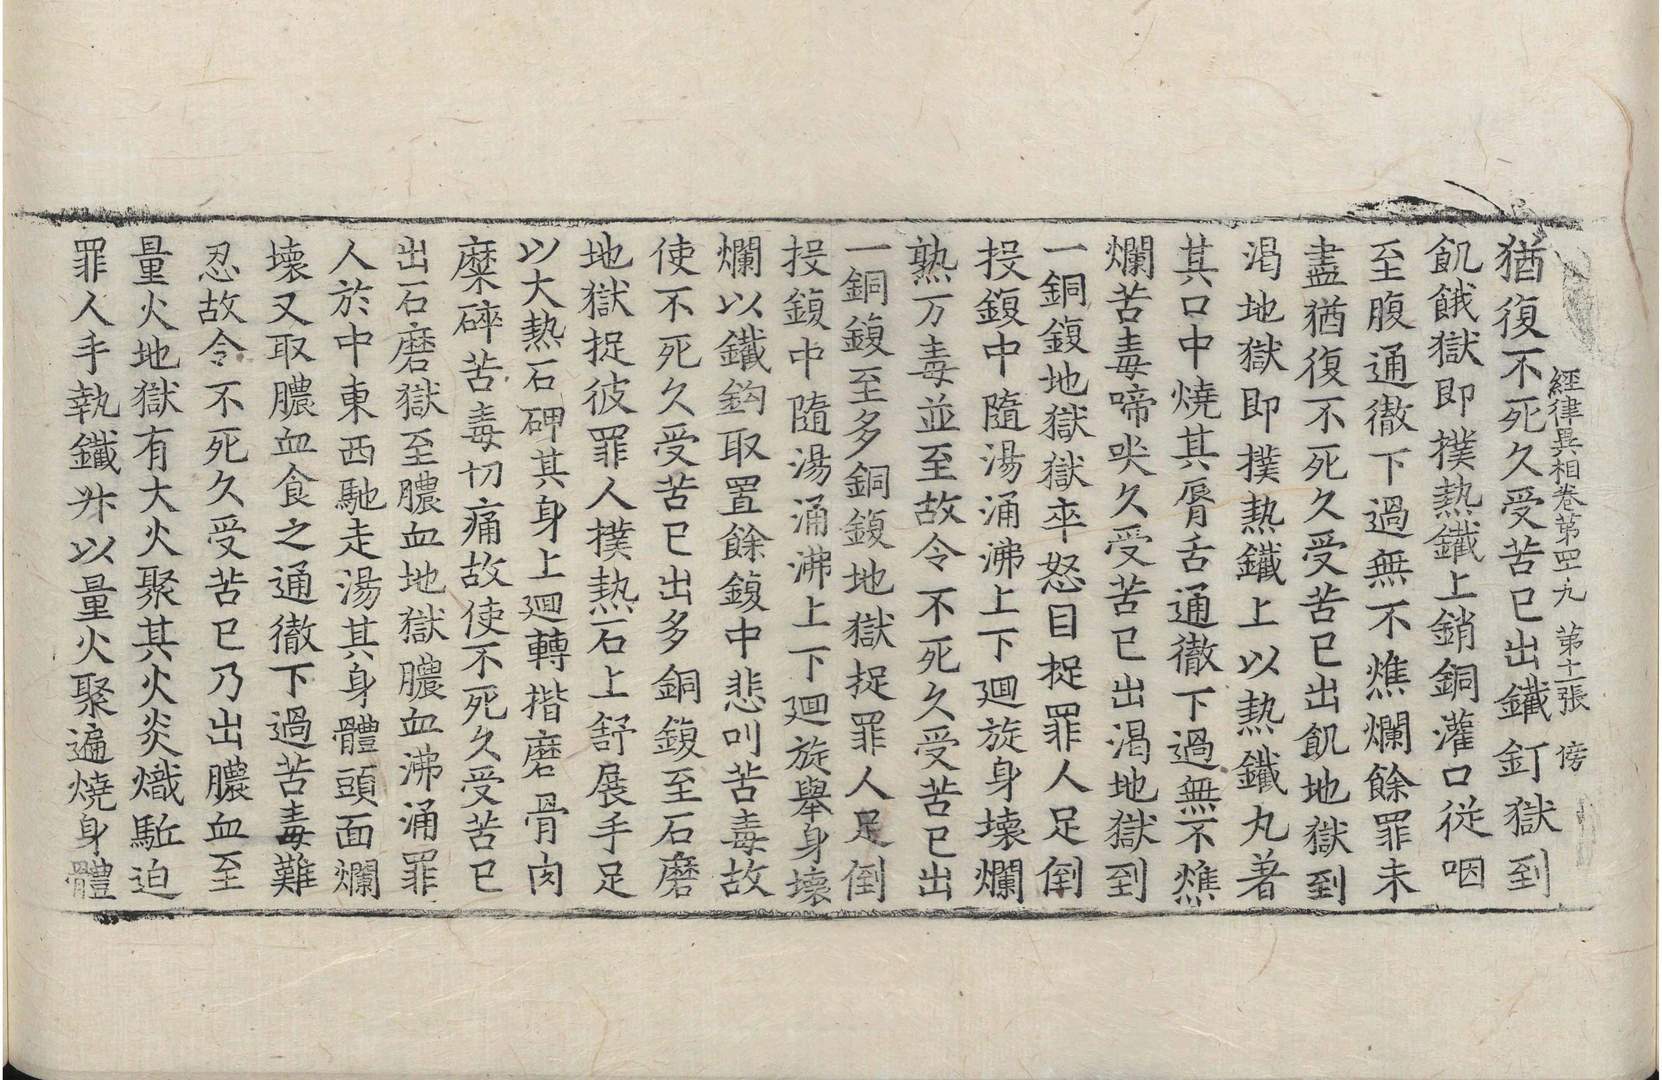 經律異相卷第四九 第十一張 傍
猶復不死久受苦已出鐵釘獄到
飢餓獄即撲熱鐵上銷銅灌口從咽
至腹通徹下過無不燋爛餘罪未
盡猶復不死久受苦已出飢地獄到
渴地獄即撲熱鐵上以熱鐵丸著
其口中燒其脣舌通徹下過無不燋
爛苦毒啼哭久受苦已出渴地獄到
一銅鍑地獄獄卒怒目捉罪人足倒
投鍑中隨湯涌沸上下迴旋身壞爛
熟万毒並至故令不死久受苦已出
一銅鍑至多銅鍑地獄捉罪人足倒
投鍑中隨湯涌沸上下迴旋舉身壞
爛以鐵鈎取置餘鍑中悲叫苦毒故
使不死久受苦已出多銅鍑至石磨
地獄捉彼罪人撲熱石上舒展手足
以大熱石砷其身上迴轉揩磨骨肉
糜碎苦毒切痛故使不死久受苦已
出石磨獄至膿血地獄膿血沸涌罪
人於中東西馳走湯其身體頭面爛
壞又取膿血食之通徹下過苦毒難
忍故令不死久受苦已乃出膿血至
量火地獄有大火聚其火炎熾駈迫
罪人手執鐵升以量火聚遍燒身體